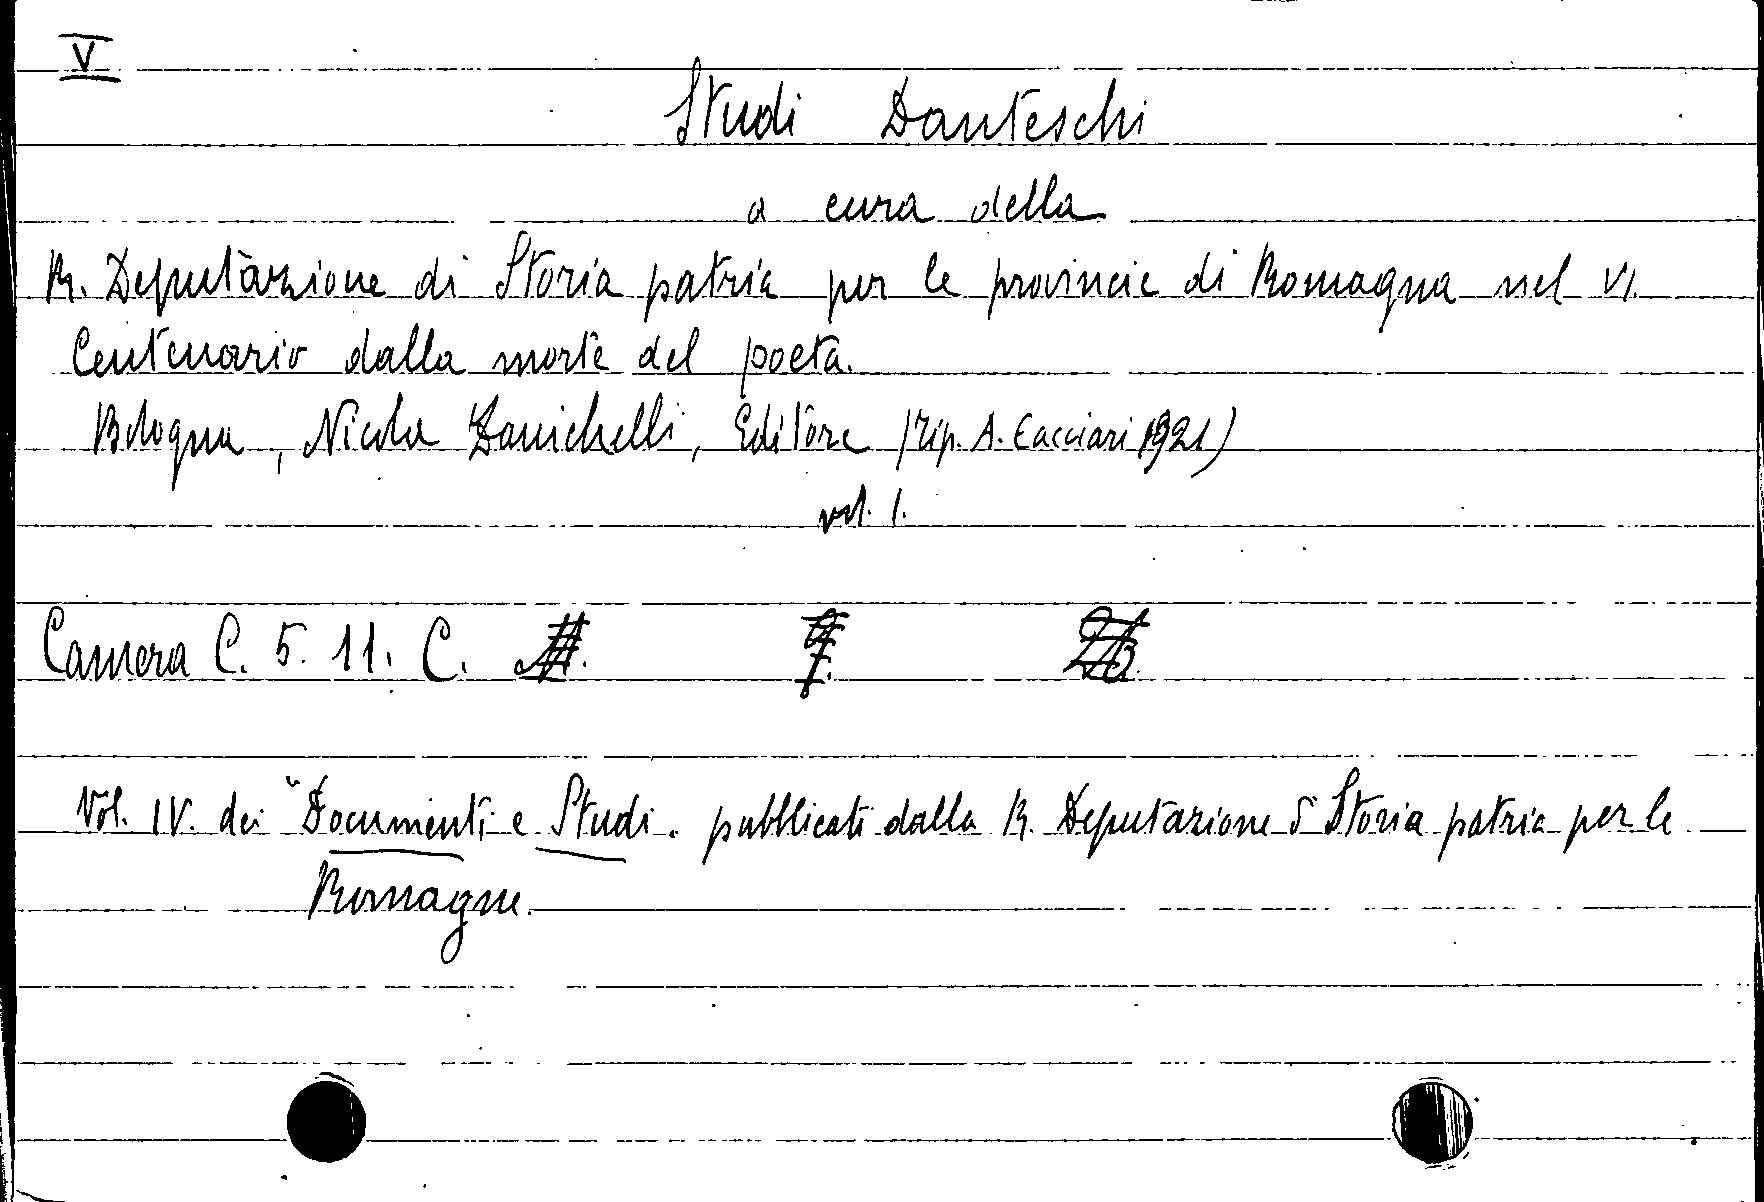 V
Studi Danteschi
a cura della
R. Deputazione di Storia patria per le provincie di Romagna nel VI.
Centenario dalla morte del poeta.
Bologna, Nicola Zanichelli, Editore (tip. A. Cacciari 1921)
vol. I.
Camera C. 5. 11. C.
Vol. IV. dei "Documenti e Studi. pubblicati dalla R. Deputazione di Storia patria per le
Romagne.